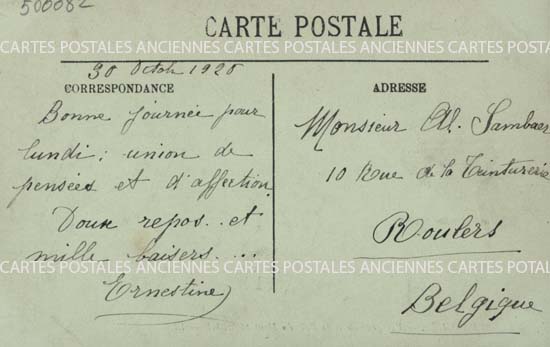 500082
CARTE POSTALE
CARTES POSTALES ANCIENNES CARTES POSTALES ANCIENNES CARTES POSTALES ANCIENNES
30 Octob 1920
CORRESPONDANCE
Bonne journée pour
lundi; union de
pensées et d'affection
Doux repos.. et
mille baisers....
Ernestine
ADRESSE
Monsieur Al. Sambaer
10 Rue de la Teinturerie
Roulers
Belgique
CARTES POSTALES ANCIENNES CARTES POSTALES ANCIENNES CARTES POSTALES ANCIENNES